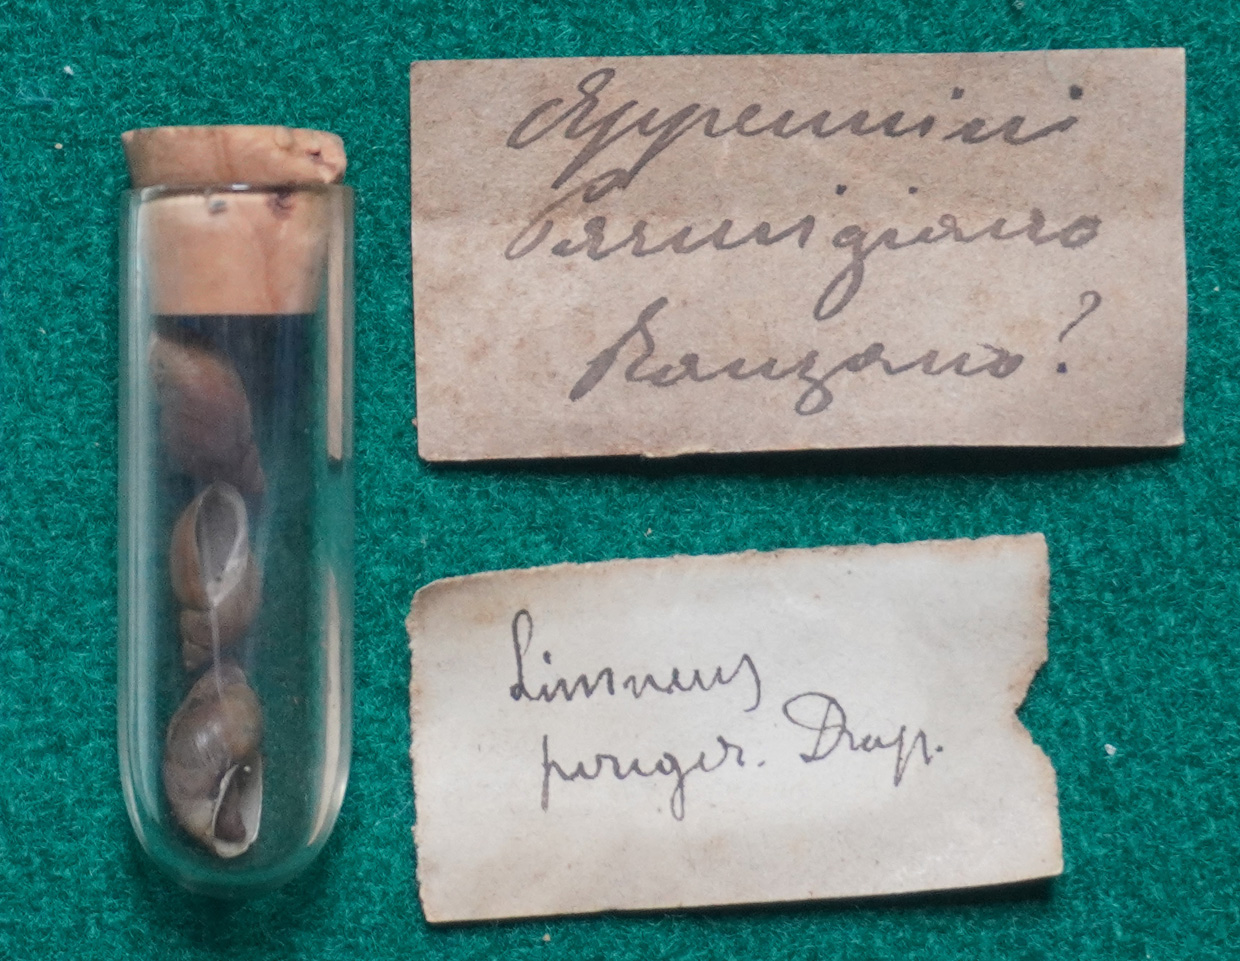 Appennini
Parmigiano
Ranzano?
Limneus
pereger. Drap.